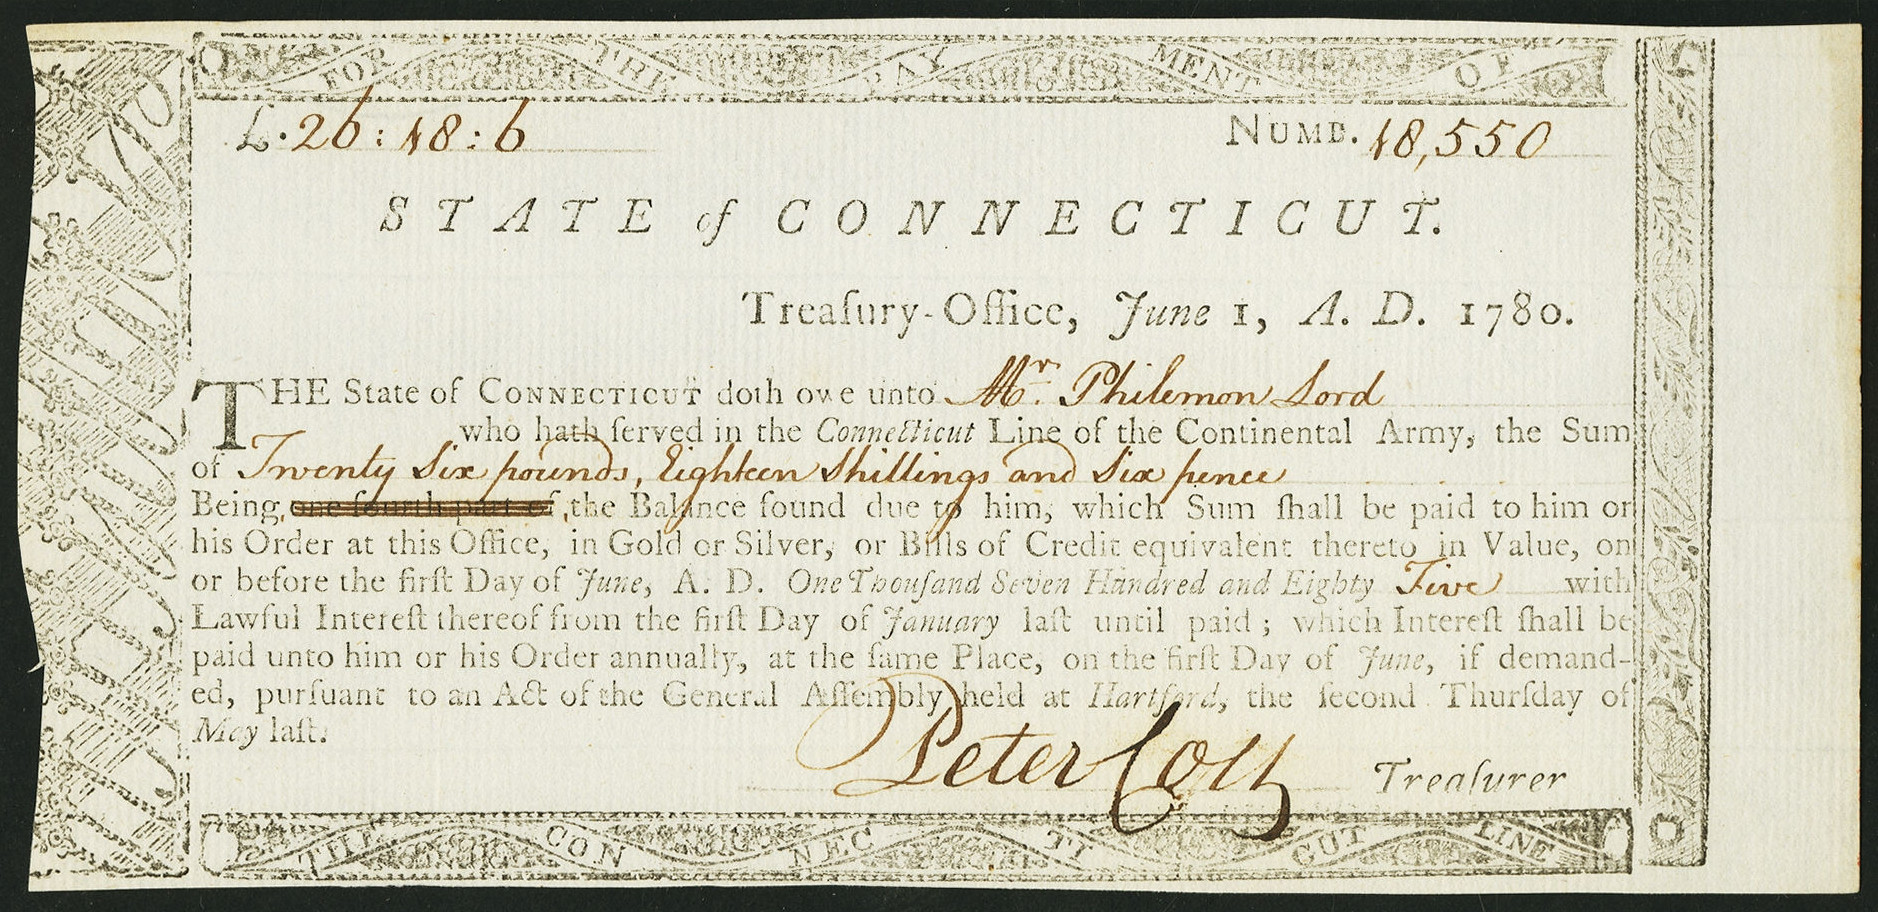 FOR THE PAYMENT OF
£.26:18:6 NUMB. 18,550
STATE of CONNECTICUT.
Treaſury-Office, June 1, A. D. 1780.
THE State of CONNECTICUT doth owe unto Mr. Philemon Lord
who hath ſerved in the Connecticut Line of the Continental Army, the Sum
of Twenty Six pounds, Eighteen Shillings and Six pence
Being one fourth part of the Balance found due to him, which Sum ſhall be paid to him or
his Order at this Office, in Gold or Silver, or Bills of Credit equivalent thereto in Value, on
or before the firſt Day of June, A. D. One Thouſand Seven Hundred and Eighty Five with
Lawful Intereſt thereof from the firſt Day of January laſt until paid; which Intereſt ſhall be
paid unto him or his Order annually, at the ſame Place, on the firſt Day of June, if demand-
ed, purſuant to an Act of the General Aſſembly held at Hartford, the ſecond Thurſday of
May laſt.
Peter Colt Treaſurer
THE CONNECTICUT LINE